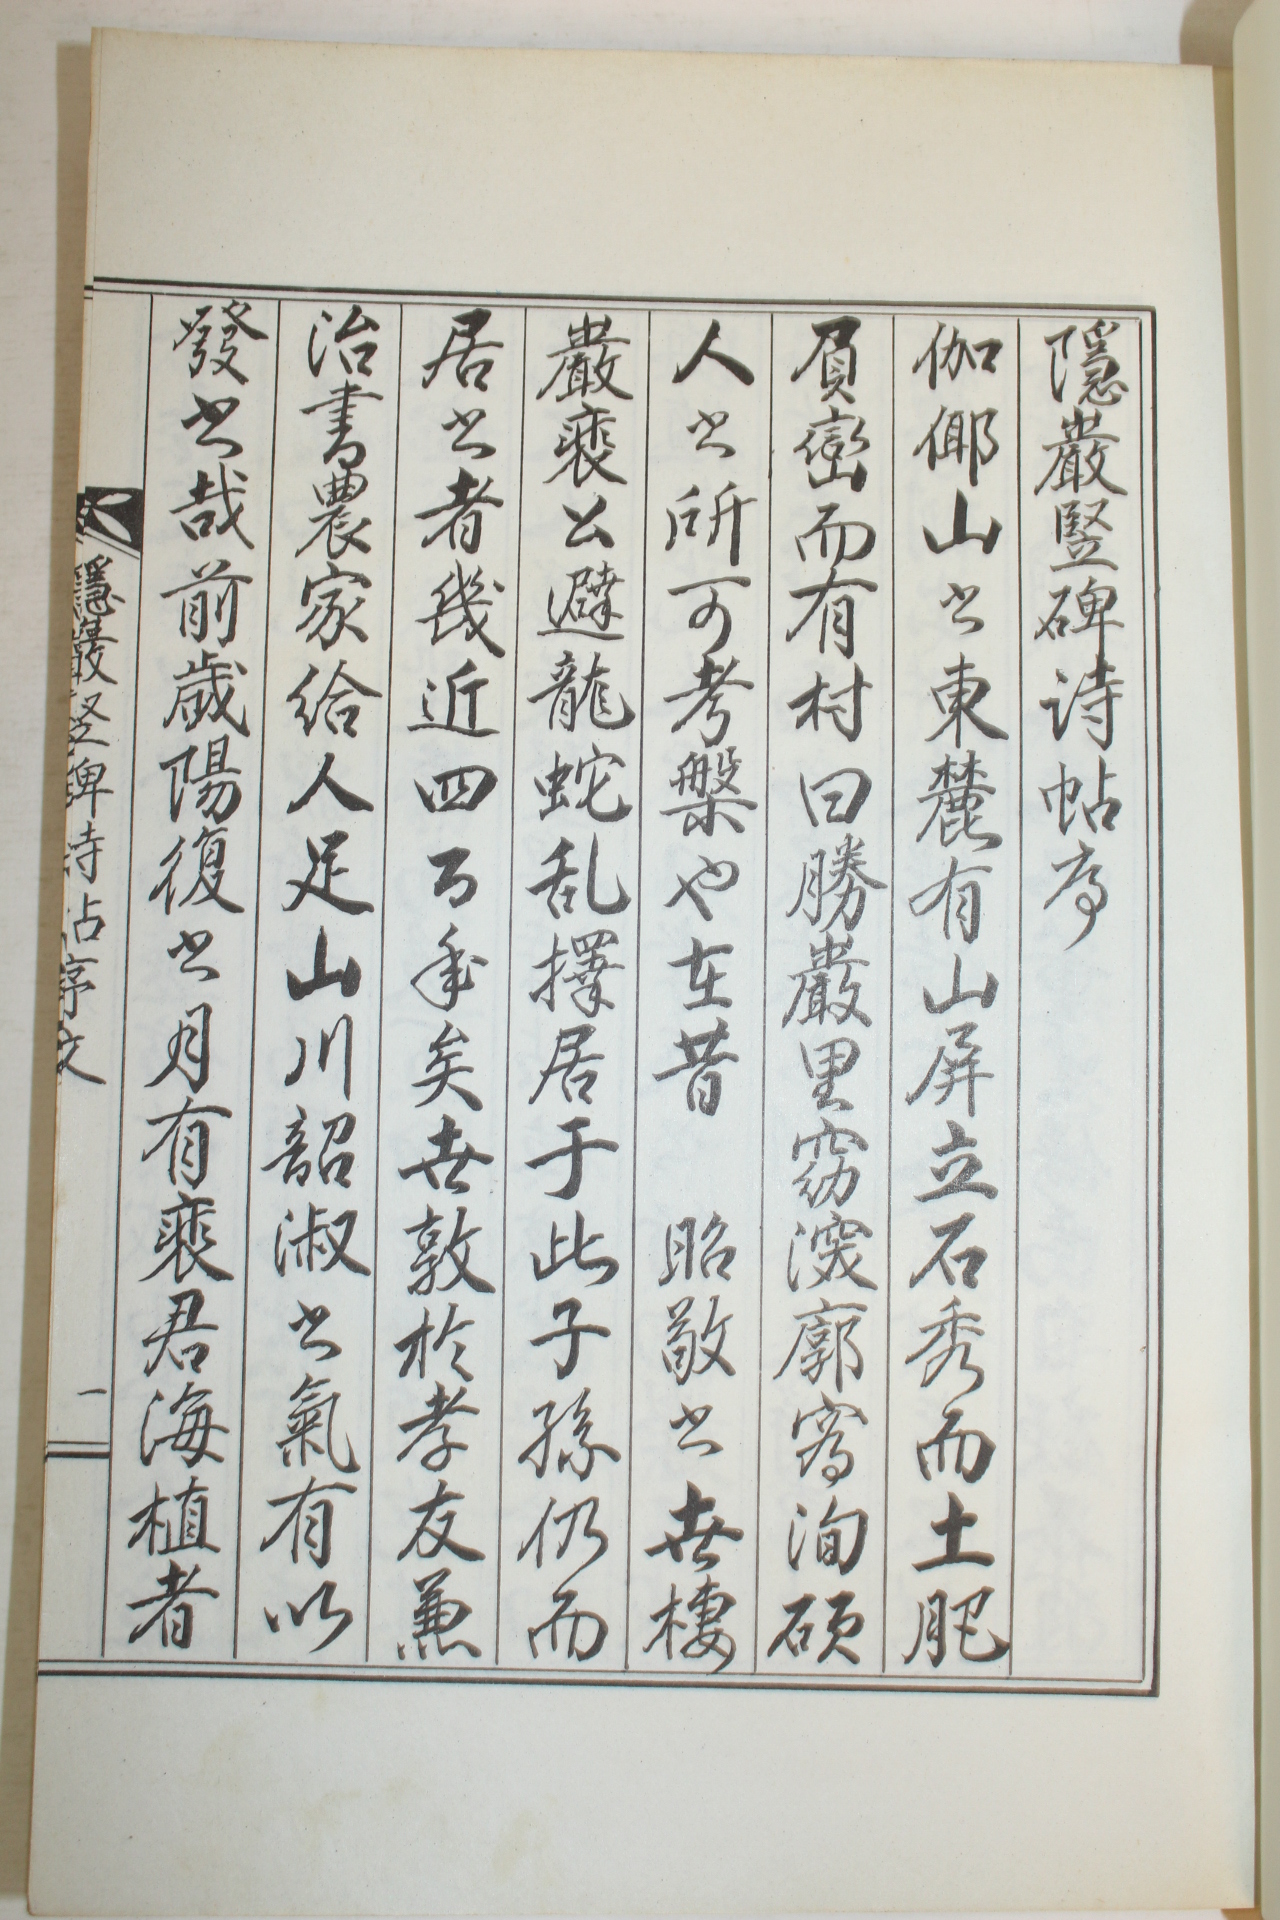 隱巖竪碑詩帖序
伽倻山之東麓有山屏立石秀而土肥
負巒而有村曰勝巖里窈深廓寫洵碩
人之所可考槃也在昔 昭敬之世棲
巖裵公避龍蛇乱擇居于此子孫仍而
居之者幾近四百年矣世敦於孝友兼
治書農家給人足山川韶淑之氣有以
發之哉前歲陽復之月有裵君海植者
隱巖竪碑詩帖序文
一